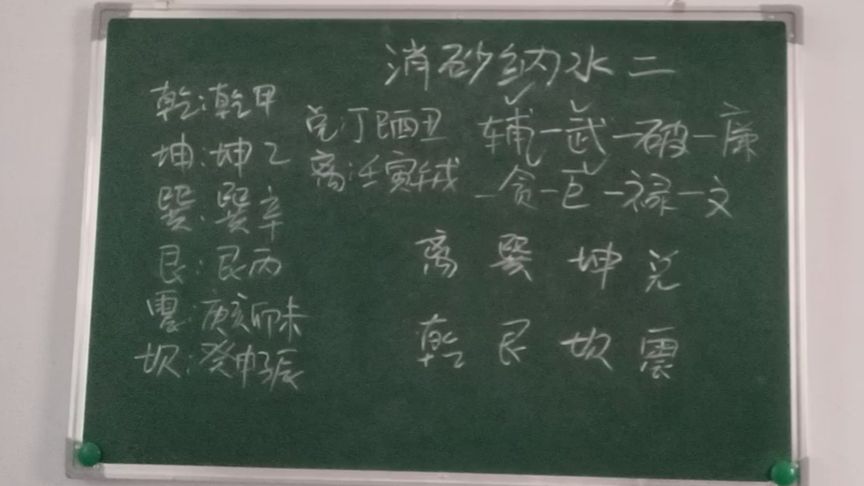 消砂纳水二
乾:乾甲
坤:坤乙
巽:巽辛
艮:艮丙
震:庚亥卯未
坎:癸申子辰
兑:丁巳酉丑
离:壬寅午戌
辅-武-破-廉
-贪-巨-禄-文
离 巽 坤 兑
乾 艮 坎 震